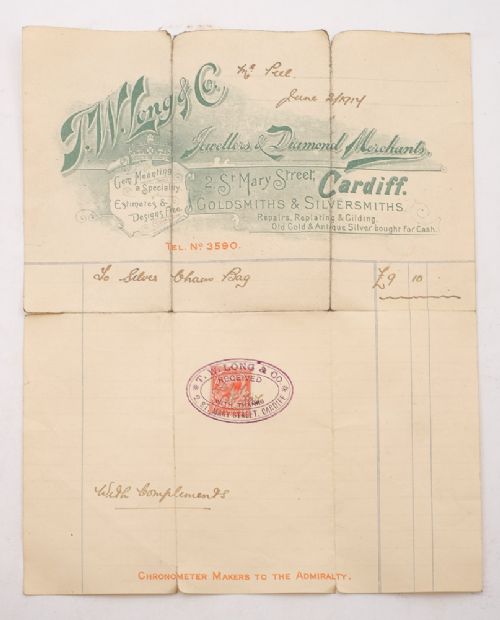 T. W. Long & Co.
Mr Peel
June
Jewellers & Diamond Merchants,
Gem Mounting
a Speciality.
Estimates &
Designs Free.
2, St Mary Street, Cardiff.
Goldsmiths & Silversmiths
Repairs, Replating & Gilding.
Old Gold & Antique Silver bought for Cash.
Tel. No 3590.
To Silver Chain Bag £9 10
T. W. LONG & CO.
RECEIVED
WITH THANKS
2, ST. MARY STREET, CARDIFF
With Compliments
Chronometer Makers to the Admiralty.